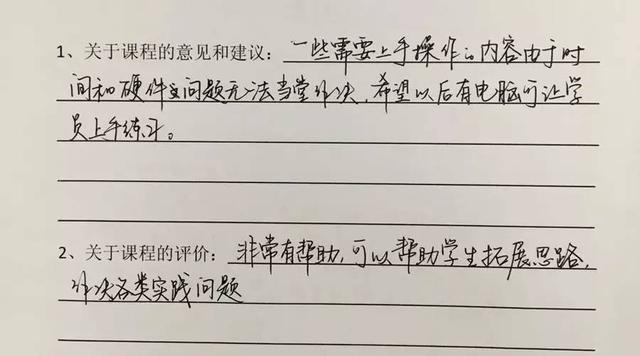 1、关于课程的意见和建议：一些需要上手操作的内容由于时
间和硬件的问题无法当堂解决，希望以后有电脑可让学
员上手练习。
2、关于课程的评价：非常有帮助，可以帮助学生拓展思路，
解决各类实践问题